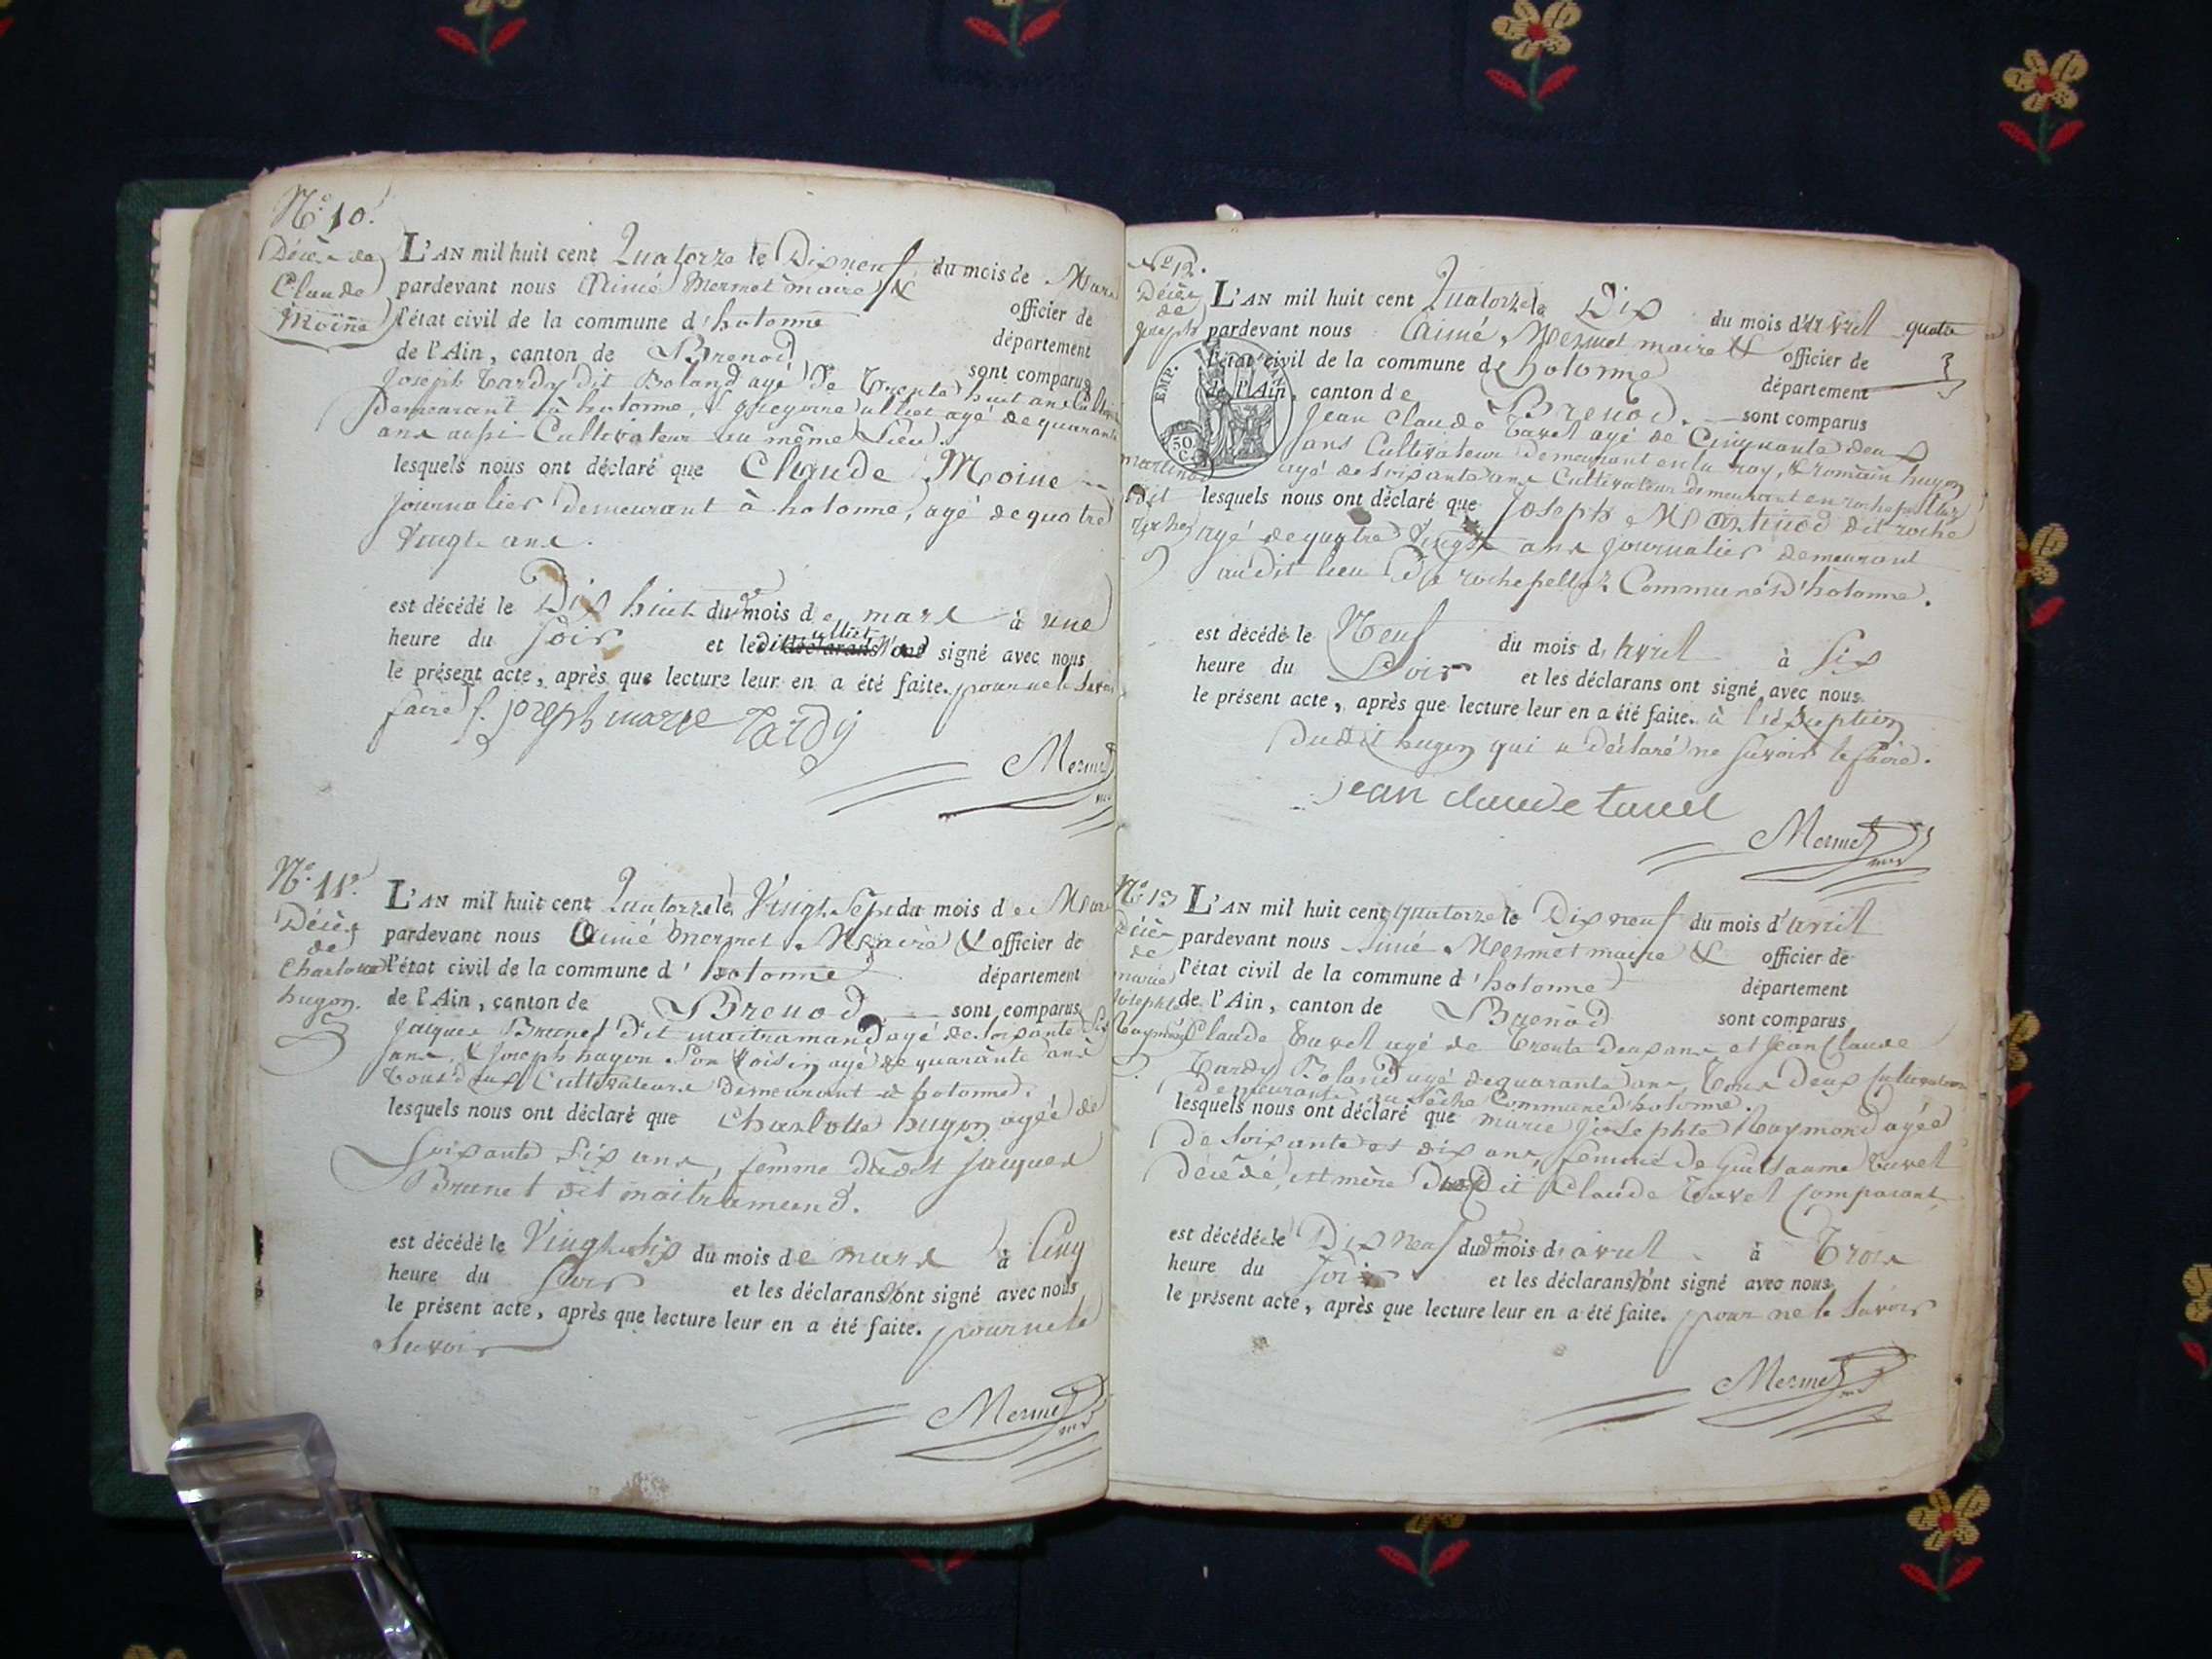 N.º 10.
Décès de
Claude
Moine
L'AN mil huit cent Quatorze le Dix neuf du mois de Mars
pardevant nous Aimé Mermet maire & officier de
l'état civil de la commune d'hotonne département
de l'Ain, canton de Brenod sont comparus
Joseph tardy dit Boland agé de trente huit ans
Demeurant à hotonne, & gregoire ulliet agé de quarante
ans aussi Cultivateur au même Lieu.
lesquels nous ont déclaré que Claude Moine
journalier Demeurant à hotonne, agé de quatre
Vingt ans.
est décédé le Dix huit du mois de mars à une
heure du soir et ledit ulliet n'ont signé avec nous
le présent acte, après que lecture leur en a été faite. pour ne le savoir
faire f. joseph marie Tardy
Mermet
N.º 11.º
Décès
de
Charlotte
hugon.
L'AN mil huit cent Quatorze le Vingt Sept du mois de Mars
pardevant nous Aimé Mermet Maire & officier de
l'état civil de la commune d'hotonne département
de l'Ain, canton de Brenod sont comparus
Jaques Brunet dit maitramand agé de soixante Six
ans, & Joseph hugon Son Voisin agé de quarante ans
tous deux Cultivateurs Demeurant à hotonne.
lesquels nous ont déclaré que Charlotte hugon agée de
Soixante Six ans, femme dudit jaques
Brunet dit maitramand.
est décédé le Vingt Six du mois de mars à Cinq
heure du soir et les déclarans n'ont signé avec nous
le présent acte, après que lecture leur en a été faite. pour ne le
Savoir
Mermet
Nº 12.
Décès
de
Joseph
martinod
dit
roche
L'AN mil huit cent Quatorze le Dix du mois d'Avril
quatre
3
pardevant nous Aimé Mermet maire & officier de
l'état civil de la commune d'hotonne département
de l'Ain, canton de Brenod. sont comparus
EMP.
50.
C.
jean Claude tavel agé de Cinquante deux
ans Cultivateur Demeurant en la ray, & romain hugon
agé de soixante ans Cultivateur demeurant en rochepellaz
lesquels nous ont déclaré que Joseph Martinod dit roche
agé de quatre Vingt ans journalier demeurant
audit lieu de rochepellaz Commune d'hotonne.
est décédé le Neuf du mois d'Avril à Six
heure du Soir et les déclarans ont signé avec nous
le présent acte, après que lecture leur en a été faite. à l'éxception
Dudit hugon qui a déclaré ne Savoir le faire.
jean claude tavel
Mermet
Nº 13
Décès
de
marie
Josephte
Raymond
L'AN mil huit cent quatorze le Dix neuf du mois d'avril
pardevant nous Aimé Mermet maire & officier de
l'état civil de la commune d'hotonne département
de l'Ain, canton de Brenod sont comparus
Claude tavel agé de trente deux ans et Jean Claude
tardy Boland agé de quarante ans tous Deux Cultivateurs
Demeurants Commune d'hotonne.
lesquels nous ont déclaré que marie Josephte Raymond agée
de soixante et dix ans, femme de Guillaume tavel
décédé, et mère Dudit Claude tavel Comparant
est décédée le Dix Neuf dud. mois d'avril à trois
heure du soir et les déclarans n'ont signé avec nous
le présent acte, après que lecture leur en a été faite. pour ne le savoir
Mermet